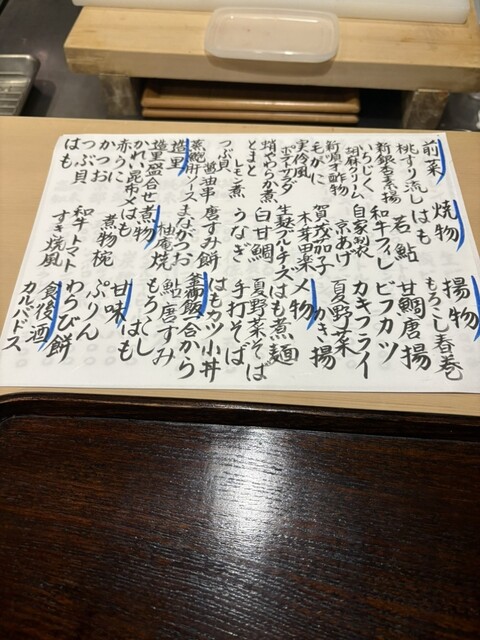 前菜
桃すり流し
新銀杏素揚
いちじく
胡麻クリーム
毛がに
ポテトサラダ
蛸やわらか煮
とまと
つぶ貝
蒸鮑肝ソース
造里
造里盛合せ
かれい昆布〆
赤うに
かつお
つぶ貝
はも
焼物
はも
若鮎
和牛フィレ
自家製
京あげ
賀茂茄子
田楽
白甘鯛
うなぎ
唐すみ餅
醤油串
まながつお
柚庵焼
煮物
はも
煮物椀
和牛トマト
すき焼風
揚物
もろこし春巻
甘鯛唐揚
ビフカツ
カキフライ
夏野菜
かき揚
〆物
はも煮麺
夏野菜そば
手打そば
はもカツ小丼
鮎唐すみ
もろこし
はも
甘味
ぷりん
わらび餅
食後酒
カルバドス